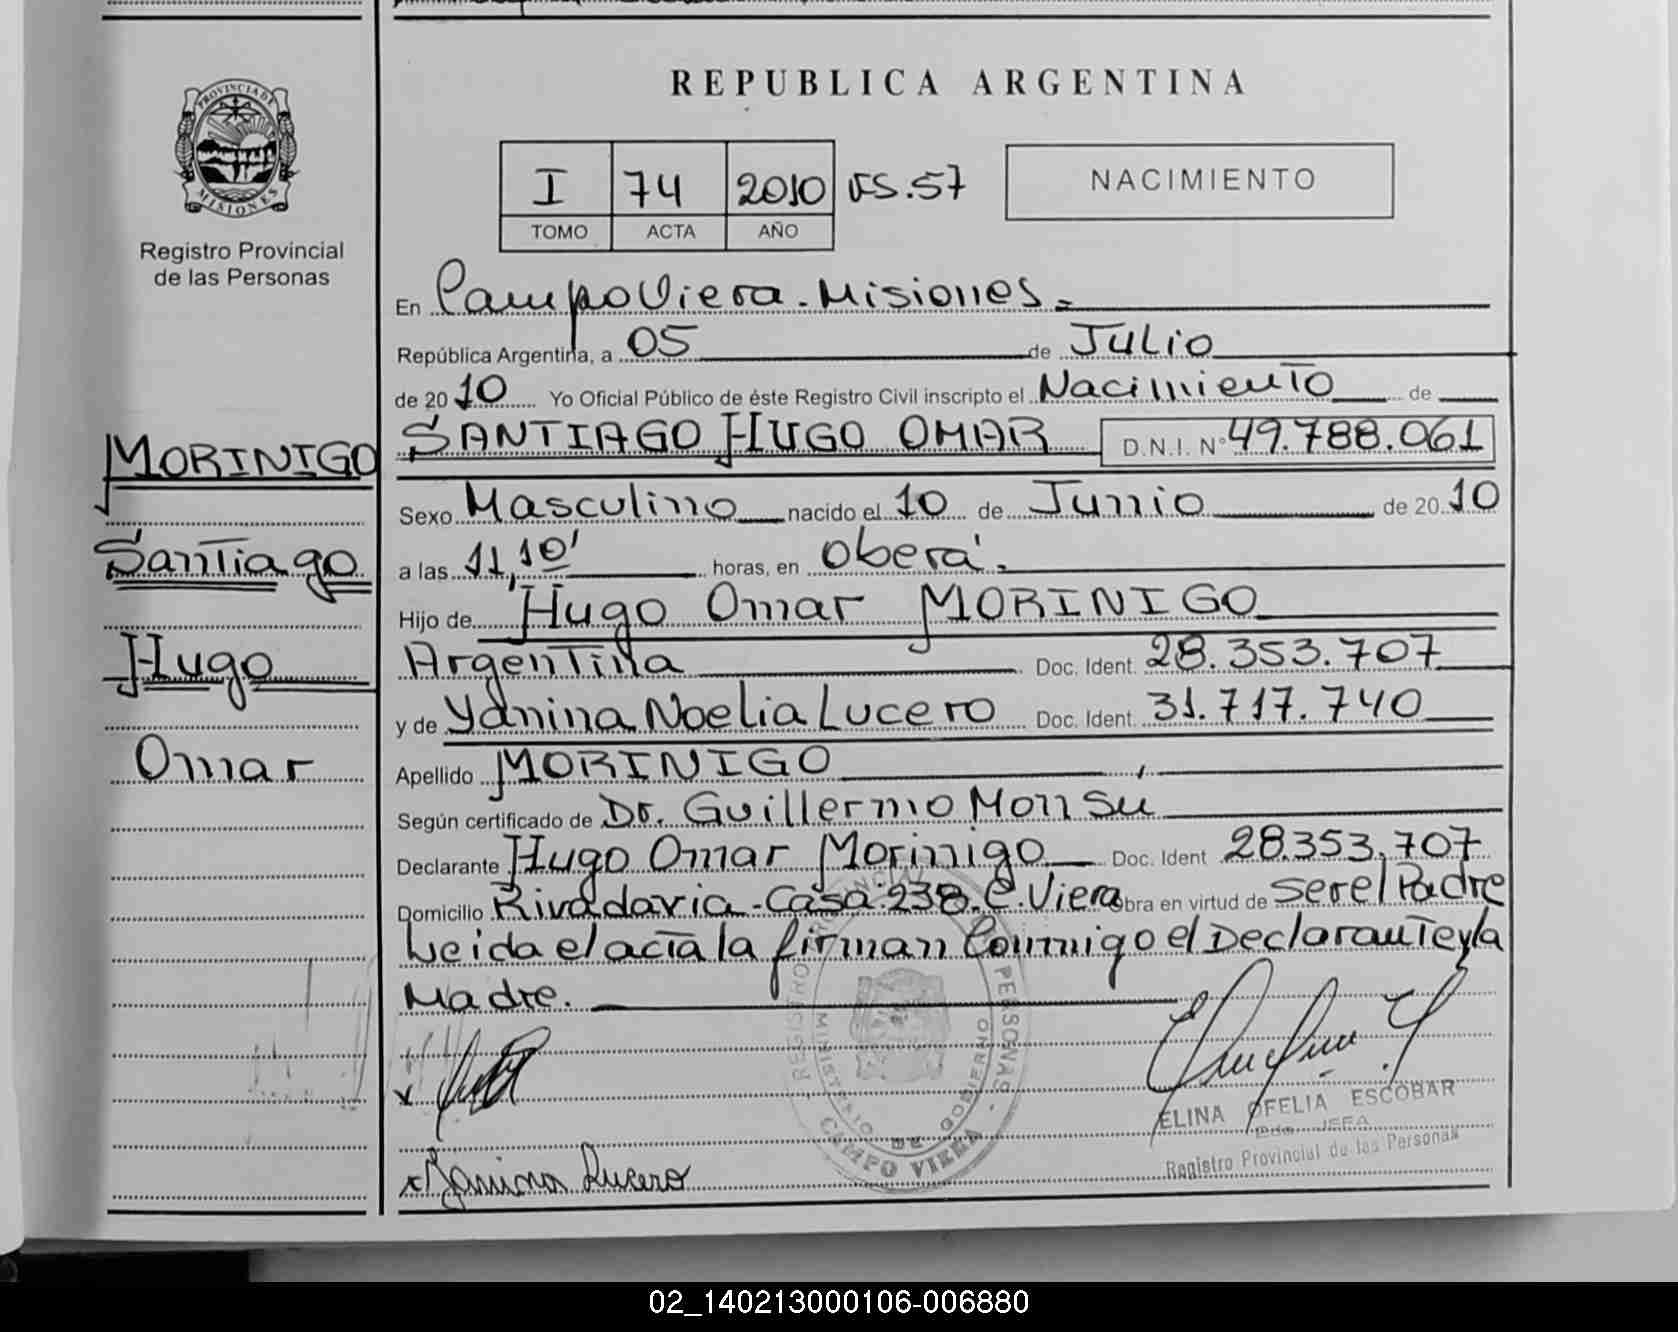 REPUBLICA ARGENTINA
PROVINCIA DE
MISIONES
Registro Provincial
de las Personas
I 74 2010 FS.57
TOMO ACTA AÑO
NACIMIENTO
En Campo Viera - Misiones.=
República Argentina, a 05 de Julio
de 2010 Yo Oficial Público de éste Registro Civil inscripto el Nacimiento de
SANTIAGO HUGO OMAR D.N.I. N° 49.788.061
Sexo Masculino nacido el 10 de Junio de 2010
a las 11,10' horas, en Oberá.
Hijo de Hugo Omar MORINIGO
Argentina Doc. Ident. 28.353.707
y de Yanina Noelia Lucero Doc. Ident. 31.717.740
Apellido MORINIGO
Según certificado de Dr. Guillermo Monsu
Declarante Hugo Omar Morinigo Doc. Ident 28.353.707
Domicilio Rivadavia - Casa: 238. C. Viera Obra en virtud de Ser el Padre
Leida el acta la firman Conmigo el Declarante y la
Madre.
MORINIGO
Santiago
Hugo
Omar
x
x Yanina Lucero
REGISTRO PROVINCIAL DE PERSONAS
MINISTERIO DE GOBIERNO
CAMPO VIERA
ELINA OFELIA ESCOBAR
JEFA
Registro Provincial de las Personas
02_140213000106-006880